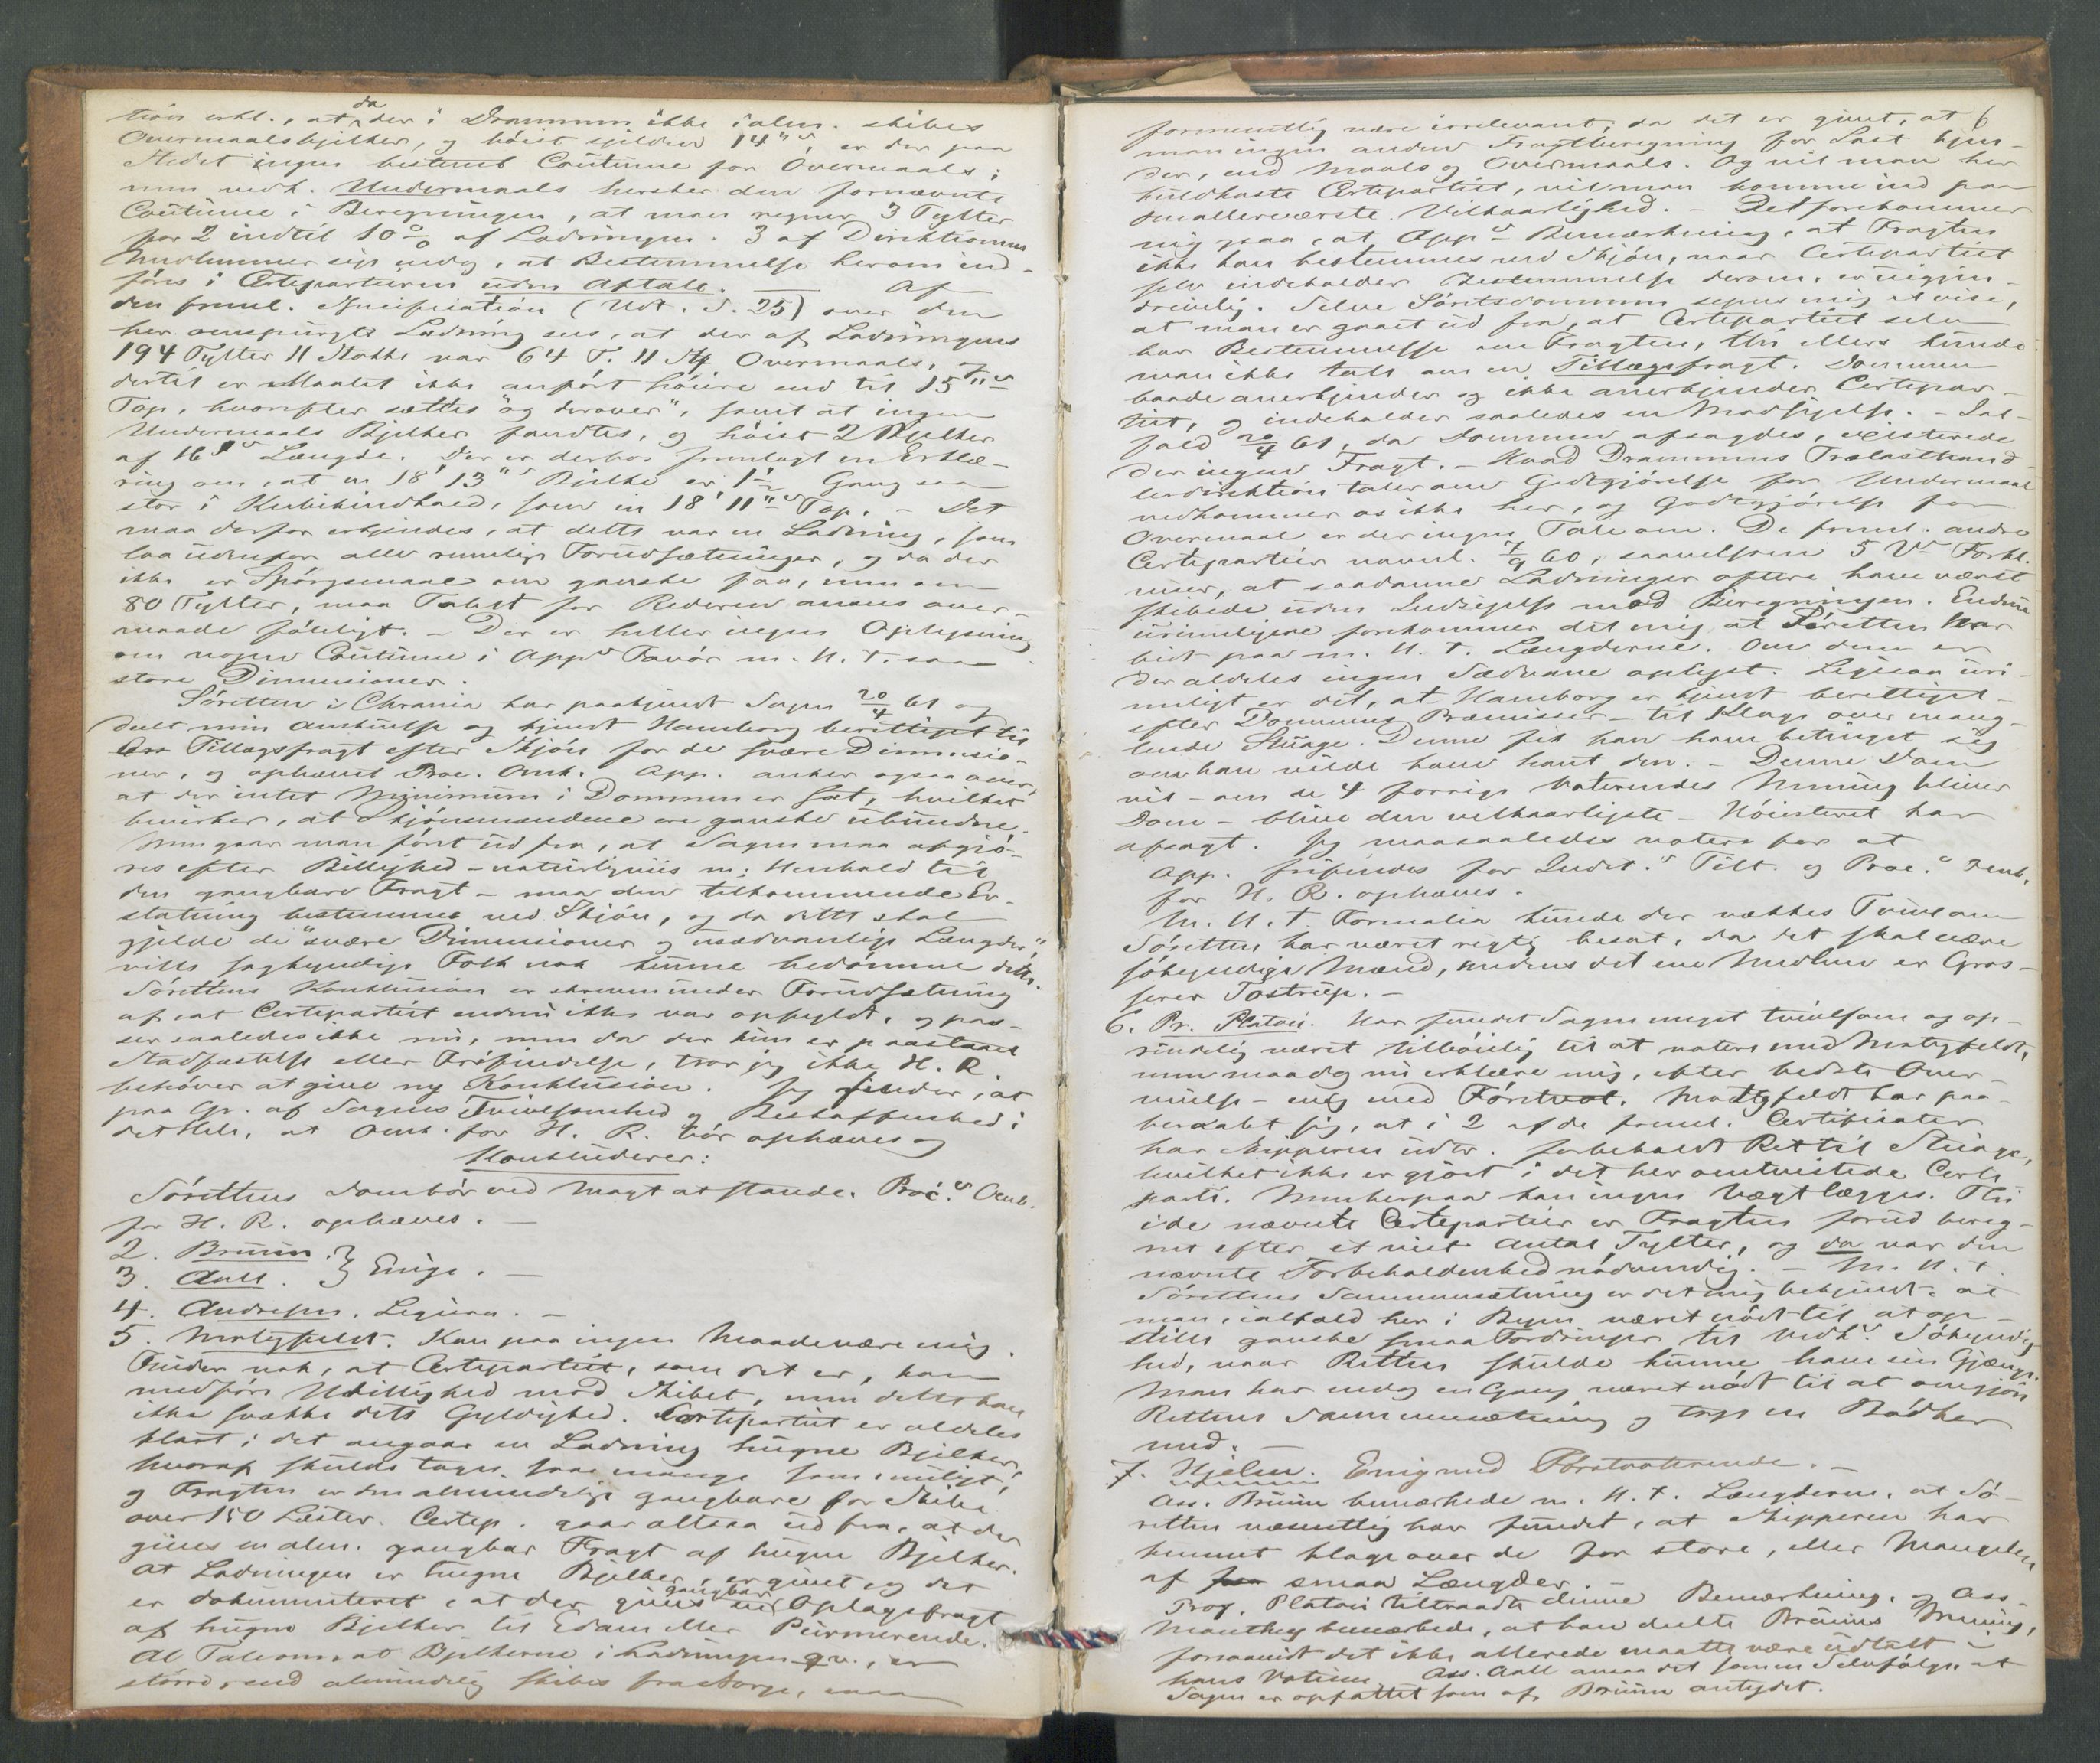 tion erkl., at da der i Drammen ikke i alm. skibes
Overmaalsbjelker, og höist sjelden 14"s, er der paa
Stedet ingen bestemt Coutume for Overmaals;
men vedk. Undermaals hersker den fornævnte
Coutume i Beregningen, at man regner 3 Tylter
for 2 indtil 10% af Ladningen. 3 af Direktionens
Medlemmer sige endog, at Bestemmelse herom ind-
föres i Certepartierne uden Aftale. — Af
den freml. Specification (Udt. S. 25) over den
her omspurgte Ladning sees, at der af Ladningens
194 Tylter 11 Stokke var 64 T. 11 St. Overmaals, og
dertil er Maalet ikke anfört höiere end til 15"s
Top, hvorefter sættes "og derover", samt at ingen
Undermaals Bjelker fandtes, og höist 2 Bjelker
af 16's Længde. Der er derhos fremlagt en Erklæ-
ring om, at en 18' 13"s Bjelke er 1½ Gang saa
stor i Kubikindhold, som en 18' 11"s Top. – Det
maa derfor erkjendes, at dette var en Ladning, som
laa udenfor alle rimelige Forudsætninger, og da der
ikke er Spörgsmaal om ganske faa, men om
80 Tylter, maa Tabet for Rederen ansees over-
maade föleligt. – Der er heller ingen Oplysning
om nogen Coutume i Appts Favör m. H. t. saa
store Dimensioner.
Söretten i Chrania har paakjendt Sagen 20/4 61 og
deelt min Anskuelse og kjendt Hamborg berettiget til
Tillægsfragt efter Skjön for de svære Dimensio-
ner, og ophævet Proc. Omk. App. anker ogsaa over,
at der intet Minimum i Dommen er sat, hvilket
bevirker, at Skjönsmændene ere ganske ubundne.
Men gaar man först ud fra, at Sagen maa afgjö-
res efter Billighed – naturligviis m. Henhold til
den gangbare Fragt – maa den tilkommende Er-
statning bestemmes ved Skjön, og da dette skal
gjelde de "svære Dimensioner og usædvanlige Længder"
ville sagkyndige Folk nok kunne bedömme dette.
Sörettens Konklusion er skreven under Forudsætning
af, at Certepartiet endnu ikke var opfyldt, og pas-
ser saaledes ikke nu, men da der kun er paastaaet
Stadfæstelse eller Frifindelse, tror jeg ikke H. R.
behöver at give ny Konklusion. Jeg finder, at
paa Gr. af Sagens Tvivlsomhed og Beskaffenhed i
det Hele, at Omk. for H. R. bör ophæves og
Konkluderer:
Sörettens Dom bör ved Magt at stande. Proc.s Omk.
for H. R. ophæves. –
2. Bruun. } Enige. –
3. Aall.
4. Andresen. Ligesaa. –
5. Motzfeldt. Kan paa ingen Maade være enig.
Finder nok, at Certepartiet, som det er, kan
medföre Ubillighed mod Skibet, men dette kan
ikke svække dets Gyldighed. Certepartiet er aldeles
klart; det angaar en Ladning hugne Bjelker,
hvoraf skulde tages saa mange som muligt,
og Fragten er den almindelige gangbare for Skibe
over 150 Læster. Certep. gaar altsaa ud fra, at der
gives en alm. gangbar Fragt af hugne Bjelker.
At Ladningen er hugne Bjelker, er givet og det
er dokumenteret, at der gives en gangbar Oplagsfragt
af hugne Bjelker til Edam eller Purmerende.
Al Tale om, at Bjelkerne i Ladningen qv., er
större, end almindelig skibes fra Norge, maa
6
formentlig være irrelevant, da det er givet, at
man ingen anden Fragtberegning for Last kjen-
der, end Maals og Overmaals. Og vil man her
kuldkaste Certepartiet, vil man komme ind paa
den allerværste Vilkaarlighed. – Det forekommer
mig ogsaa, at App.s Bemærkning, at Fragten
ikke kan bestemmes ved Skjön, naar Certepartiet
selv indeholder Bestemmelse derom, er uigjen-
drivelig. Selve Söretsdommen synes mig at vise,
at man er gaaet ud fra, at Certepartiet selv
har Bestemmelse om Fragten, thi ellers kunde
man ikke tale om en Tillægsfragt. Dommen
baade anerkjender og ikke anerkjender Certepar-
tiet, og indeholder saaledes en Modsigelse. – Ial-
fald 20/4 61, da Dommen afsagdes, existerede
der ingen Fragt. – Hvad Drammens Trælasthand-
lerdirektion taler om Godtgjörelse for Undermaal
vedkommer os ikke her, og Godtgjörelse for
Overmaal er der ingen Tale om. De freml. andre
Certepartier navnl. 7/9 60, saavelsom 5 Vrs Forkl.
viser, at saadanne Ladninger oftere have været
skibede uden Indsigelse mod Beregningen. Endnu
urimeligere forekommer det mig at Söretten har
budt paa m. H. t. Længderne. Om dem er
der aldeles ingen Sædvane oplyst. Ligesaa uri-
meligt er det, at Hamborg er kjendt berettiget –
efter Dommens Præmisser – til Klage over mang-
lende Stuage. Denne fik han have betinget sig
om han vilde have havt den. – Denne Dom
vil – om de 4 forrige Voterendes Mening bliver
Dom – blive den vilkaarligste Höiesteret har
afsagt. Jeg maa saaledes votere for at
App. frifindes for Indst.s Tilt. og Proc.s Omk.
for H. R. ophæves.
M. H. t. Formalia kunde der vækkes Tvivl om
Söretten har været rigtig besat, da det skal være
sökyndige Mænd, medens det ene Medlem er Gros-
serer Tostrup. –
6. Pr. Platou. Har fundet Sagen meget tvivlsom og op-
rindelig været tilböielig til at votere med Motzfeldt,
men maa dog nu erklære mig, efter bedste Over-
veielse – enig med Förstvot. Motzfeldt har paa-
beraabt sig, at i 2 af de freml. Certificater
har Skipperen udtr. forbeholdt Ret til Stuage,
hvilket ikke er gjört i det her omtvistede Certe-
parti. Men herpaa kan ingen Vægt lægges. Thi
i de nævnte Certepartier er Fragten forud bereg-
net efter et vist Antal Tylter, og da var den
nævnte Forbeholdenhed nödvendig. – M. H. t.
Sörettens Sammensætning er det mig bekjendt, at
man, ialfald her i Byen, været nödt til at op-
stille ganske smaa Fordringer til Vedk.s Sökyndig-
hed, naar Retten skulde kunne have sin Gjænge.
Man har endog en Gang været nödt til at omgjöre
Rettens Sammensætning og tage en Bödker
med. –
7. Hjelm. Enig med Förstvoterende. –
Ass. Bruun bemærkede m. H. t. Længderne, at Sö-
retten væsentlig har fundet, at Skipperen har
kunnet klage over de for store, eller Mangelen
af smaa Længder.
Prof. Platou tiltraadte denne Bemærkning, og Ass.
Manthey bemærkede, at han deelte Bruuns Mening,
forsaavidt det ikke allerede maatte være udtalt i
hans Votum. Ass. Aall ansaa det som en Selvfölge, at
Sagen er opfattet som af Bruun antydet.